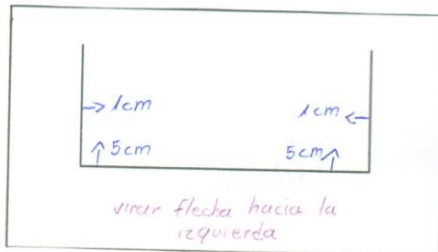 → 1cm 1cm ←
↑ 5cm 5cm ↑
virar flecha hacia la
izquierda